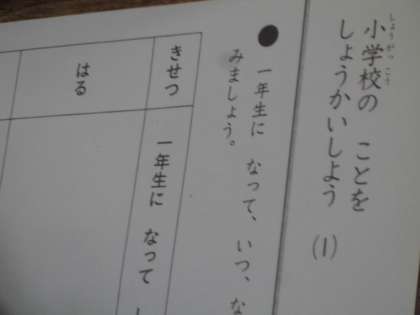 小学校の ことを
しょうかいしよう (1)
● 一年生に なって、いつ、な
みましょう。
きせつ
一年生に なって
はる